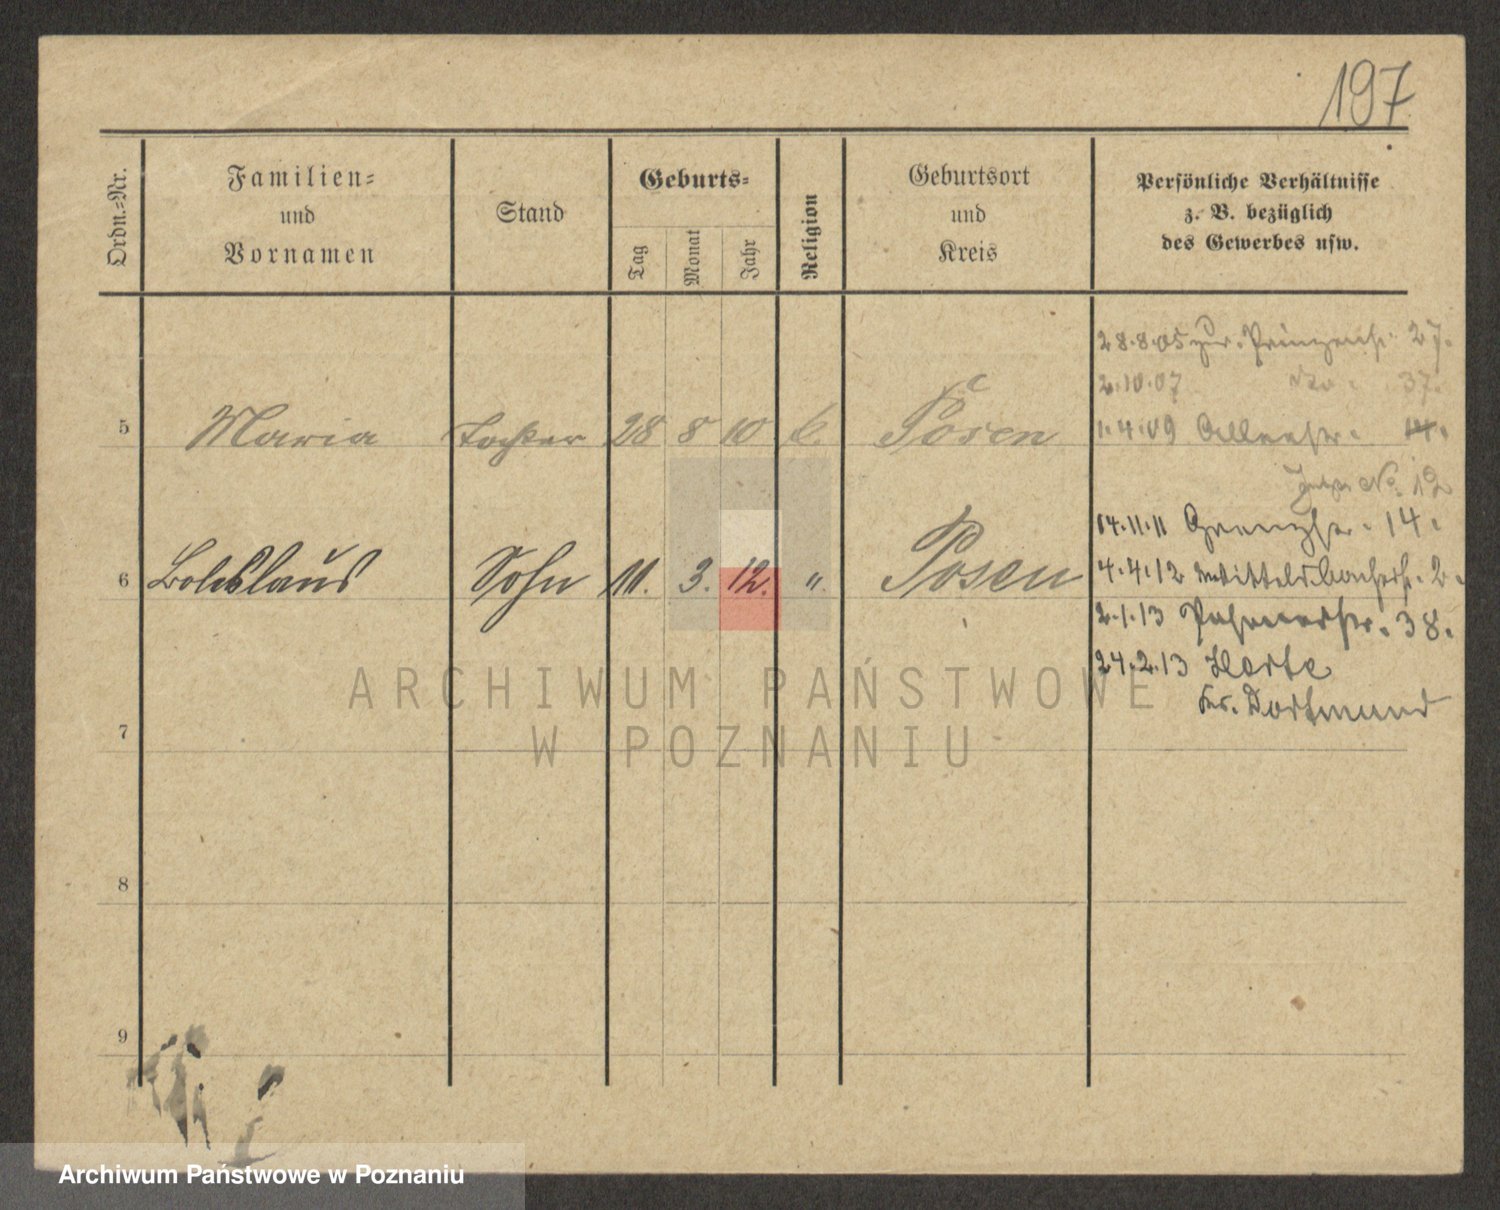 197
Ordn.=Nr.
Familien=
und
Vornamen
Stand
Geburts=
Tag
Monat
Jahr
Religion
Geburtsort
und
Kreis
Persönliche Verhältnisse
z. B. bezüglich
des Gewerbes usw.
28.8.05 zur. Prinzenstr. 27.
2.10.07 37.
5 Maria Tochter 28 8 10 k. Posen
1.4.09 14.
No. 12
14.11.11 14.
6 Boleslaus Sohn 11. 3. 12. " Posen
4.4.12 Wittelsbacherstr. 2.
2.1.13 38.
24.2.13
Kr. Dortmund
7
8
9
ARCHIWUM PAŃSTWOWE
W POZNANIU
Archiwum Państwowe w Poznaniu